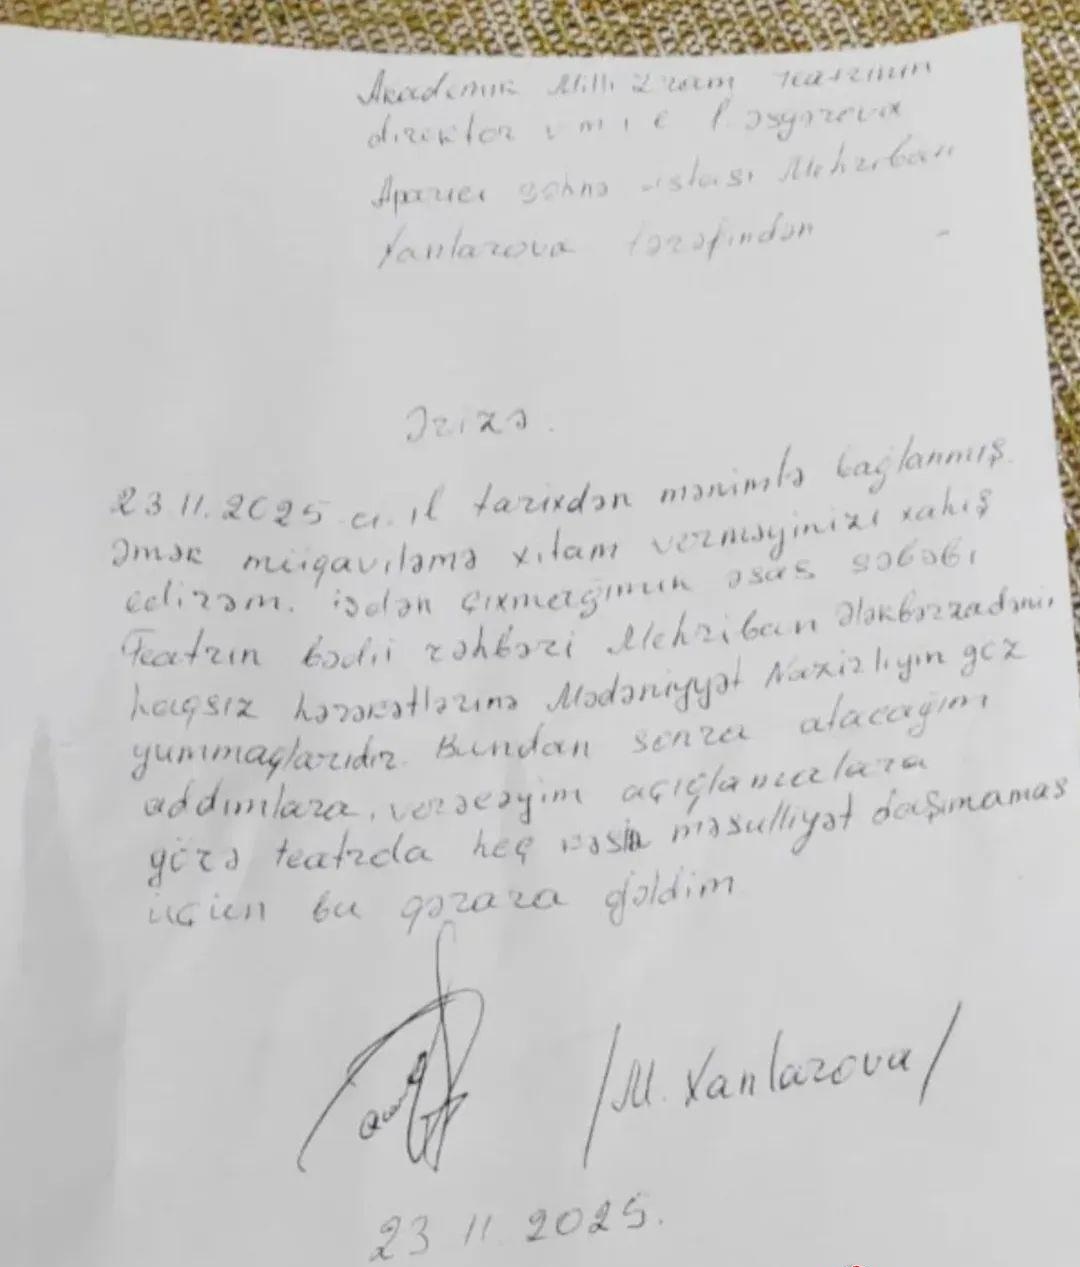 Akademik Milli Dram Teatrının
direktor v.m.i.e İ. Əsgərova
Aparıcı səhnə ustası Mehriban
Xanlarova tərəfindən
Ərizə.
23.11.2025 ci. il tarixdən mənimlə bağlanmış
əmək müqaviləmə xitam verməyinizi xahiş
edirəm. İşdən çıxmağımın əsas səbəbi
Teatrın bədii rəhbəri Mehriban Ələkbərzadənin
haqsız hərəkətlərinə Mədəniyyət Nazirliyin göz
yummaqlarıdır. Bundan sonra atacağım
addımlara, verəcəyim açıqlamalara
görə teatrda heç kəsin məsulliyət daşımamas
üçün bu qərara gəldim
/M. Xanlarova/
23 11 2025.